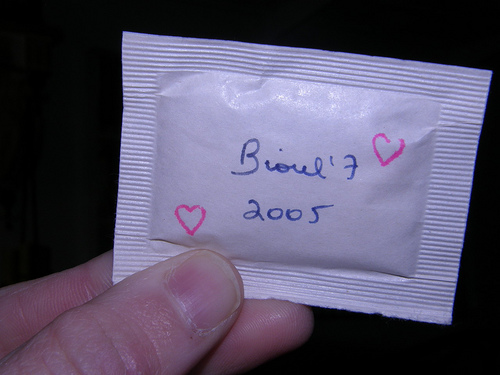 Bioul'7
2005